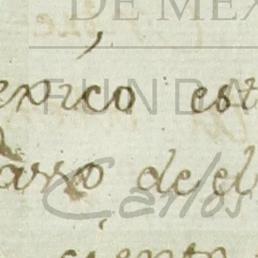 DE MEX
exico est
FUNDA
arro de el
Carlos
ciento